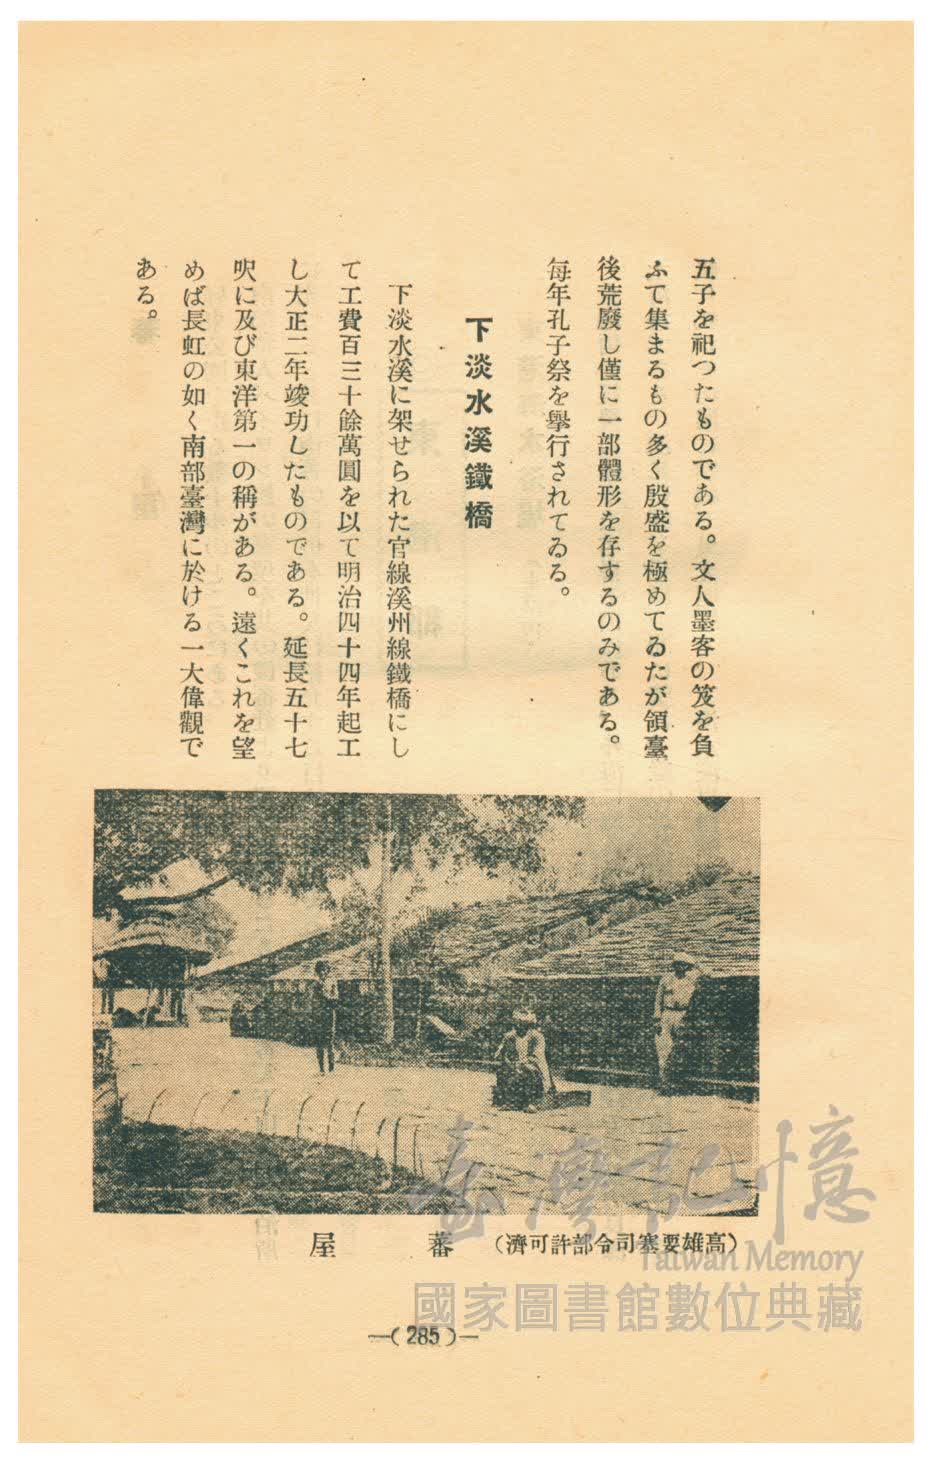 五子を祀つたものである。文人墨客の笈を負
ふて集まるもの多く殷盛を極めてゐたが領臺
後荒廢し僅に一部體形を存するのみである。
每年孔子祭を擧行されてゐる。
下淡水溪鐵橋
下淡水溪に架せられた官線溪州線鐵橋にし
て工費百三十餘萬圓を以て明治四十四年起工
し大正二年竣功したものである。延長五十七
呎に及び東洋第一の稱がある。遠くこれを望
めば長虹の如く南部臺灣に於ける一大偉觀で
ある。
（高雄要塞司令部許可濟）
蕃屋
—（285）—
臺灣記憶
Taiwan Memory
國家圖書館數位典藏